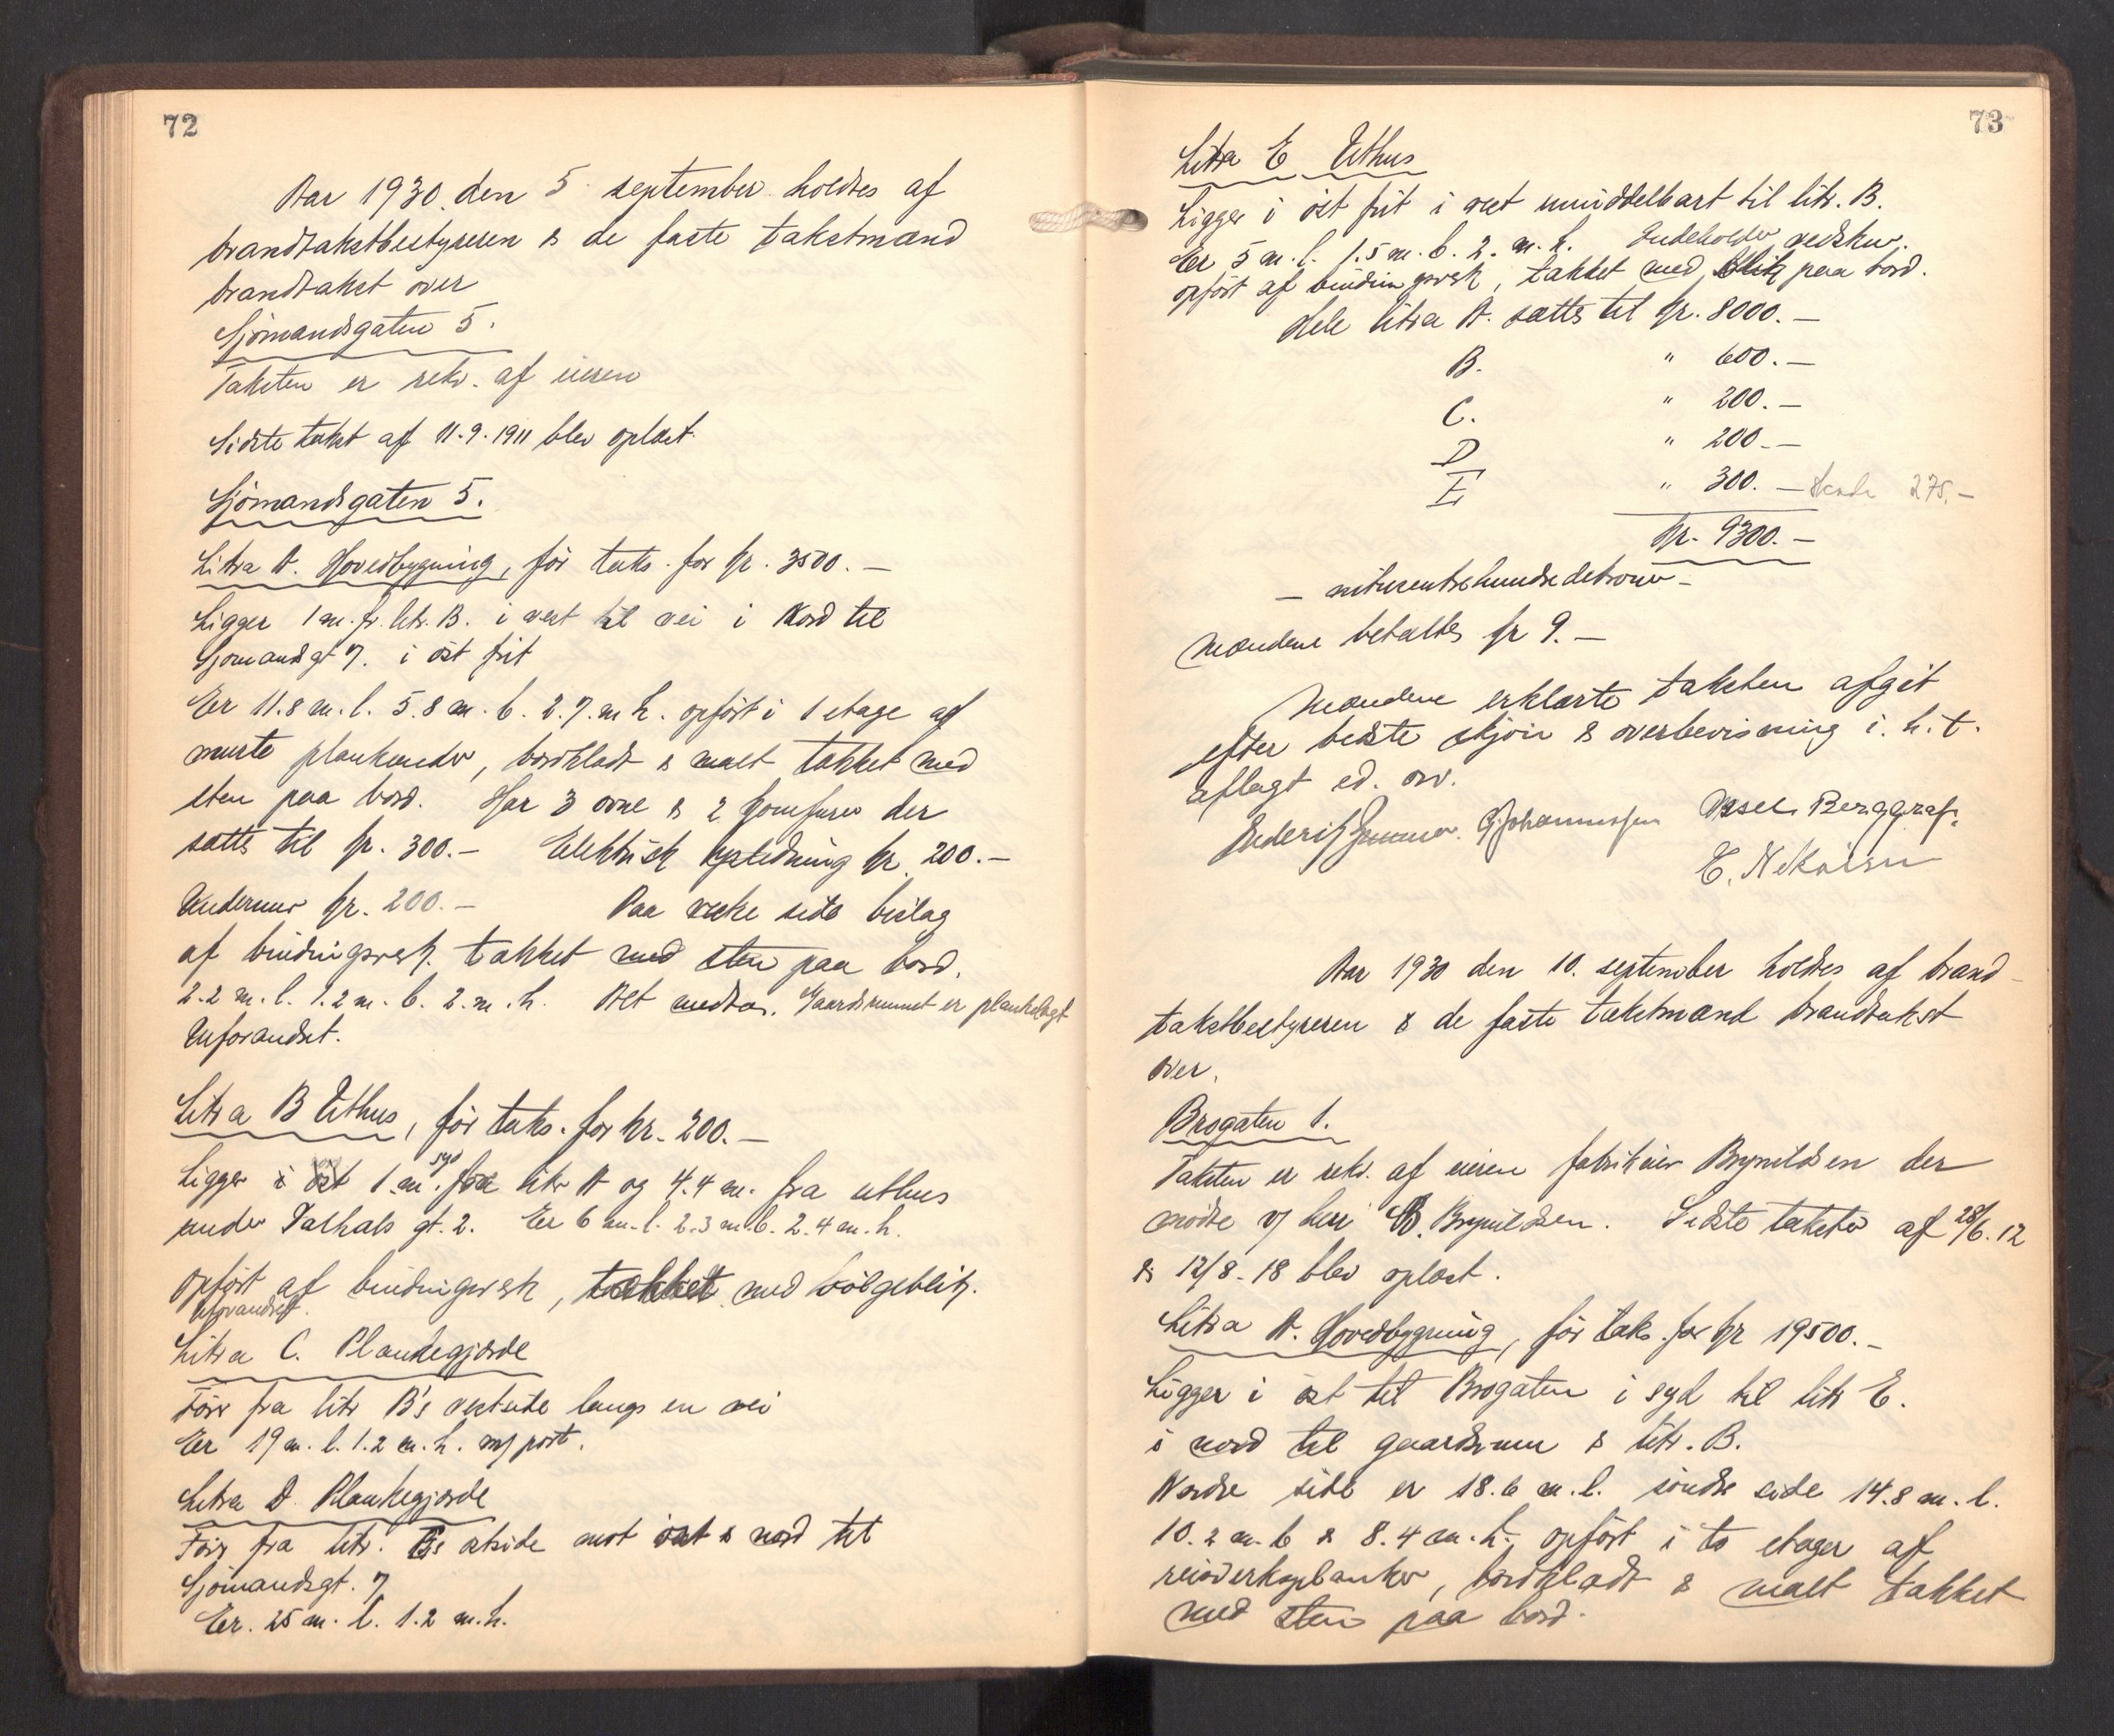 72
Aar 1930 den 5 september holdtes af
brandtakstbestyreren & de faste takstmænd
brandtakst over
Sjömandsgaten 5.
Taksten er rekv. af eieren
Sidste takst af 11.9.1911 blev oplæst.
Sjömandsgaten 5.
Litra A. Hovedbygning, för taks. for kr. 3500.—
Ligger 1 m. fr. litr. B. i vest til vei i Nord til
Sjömandsgt 7. i öst frit
Er 11.8 m. l. 5.8 m. b. 2.7. m h. opfört i 1 etage af
murte plankender, bordklædt & malt tækket med
sten paa bord. Har 3 ovne & 2 komfurer der
sættes til kr. 300.— Elektrisk opledning kr. 200.—
Undermur kr. 200.— Paa vestre side bislag
af bindingsverk. tækket med sten paa bord.
2.2 m. l. 1.2 m. b. 2. m. h. Alt medtas. Gaardsrummet er plankelagt
Uforandret.
Litra B Uthus, för taks. for kr. 200.—
syd
Ligger i öst 1 m. fra litr A og 4.4 m. fra uthus
under Valhals gt. 2. Er 6 m. l. 2.3 m b. 2.4 m. h.
opfört af bindingsverk, tækket med bölgeblik.
Uforandret.
Litra C. Plankegjærde
Förer fra litr B's vestside langs en vei
Er 19 m. l. 1.2 m. h. m/ port.
Litra D. Plankegjærde
Förer fra litr. B's östside mot öst & nord til
Sjömandsgt. 7
Er. 25 m. l. 1.2 m. h.
73
Litra E Uthus
Ligger i öst frit i vest umiddelbart til litr. B.
Er 5 m. l. 1.5 m. b. 2. m. h. Indeholder vedskur.
opfört af bindingsverk, tækket med blik paa bord.
Hele litra A. sættes til kr. 8000.—
B. " 600.—
C. " 200.—
D " 200.—
E " 300.— 275.—
kr. 9300.—
— nitusentrehundredekroner —
Mændene betaltes kr 9.—
Mændene erklærte taksten afgit
efter bedste skjön & overbevisning i. h. t.
aflagt ed. osv.
G. Johannessen Axsel Berggraf.
E. Nilsen
Aar 1930 den 10. september holdtes af brand-
takstbestyreren & de faste takstmænd brandtakst
over.
Brogaten 1.
Taksten er rekv. af eieren fabrikeier Brynildsen der
mödte v/ herr B. Brynildsen. Sidste takster af 28/6. 12
& 12/8-18 blev oplæst.
Litra A. Hovedbygning, för taks. for kr 19500.—
Ligger i öst til Brogaten i syd til litr E.
i nord til gaardsrum & litr. B.
Nordre side er 18.6 m. l. söndre side 14.8 m. l.
10.2 m. b & 8.4 m. h. opfört i to etager af
reisverksplanker, bordklædt & malt tækket
med sten paa bord.